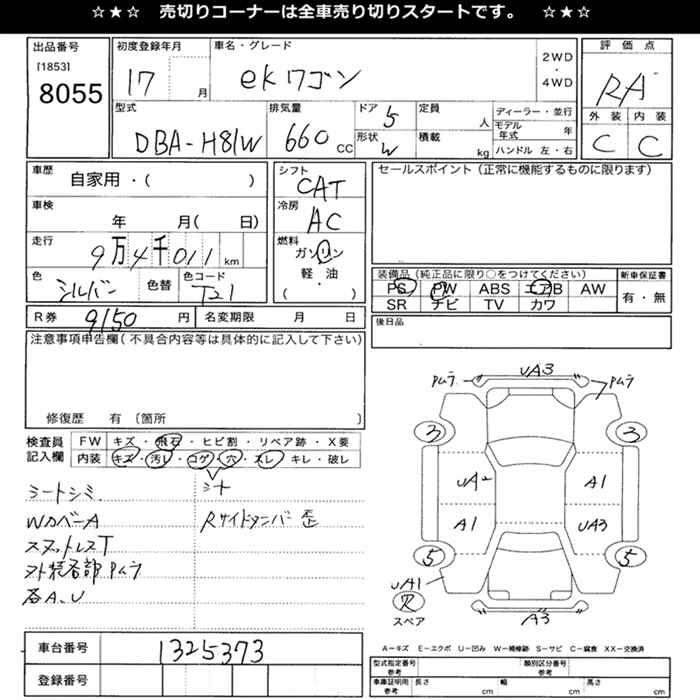 ☆★☆ 売切りコーナーは全車売り切りスタートです。 ☆★☆
出品番号
[1853]
8055
初度登録年月
17 月
車名・グレード
ekワゴン
2WD
・
4WD
評価点
RA
外装 内装
C C
型式
DBA-H81W
排気量
660 CC
ドア 5
形状 W
定員 人
積載 kg
ディーラー・並行
モデル年式 年
ハンドル 左・右
車歴
自家用・( )
車検
年 月( 日)
走行
9万4千011 km
色
シルバー
色替
色コード
T21
シフト
CAT
冷房
AC
燃料
ガソリン
軽・油
( )
セールスポイント(正常に機能するものに限ります)
装備品(純正品に限り○をつけてください)
PS PW ABS エアB AW
SR チビ TV カワ
新車保証書
有・無
R券 9150 円
名変期限 月 日
後日品
注意事項申告欄(不具合内容等は具体的に記入して下さい)
修復歴 有 〔箇所 〕
検査員
記入欄
FW キズ・飛石・ヒビ割・リペア跡・X要
内装 キズ・汚レ・コゲ・穴・スレ・キレ・破レ
シートシミ.
シート
WカバーA
Rサイドタンバー歪
スヌットレスT
外装各部Pムラ
各A、U
車台番号 1325373
登録番号
Pムラ UA3 Pムラ
3 3
UA2 A1
A1 UA3
5 5
UA1
穴
スペア
A3
A―キズ E―エクボ U―凹み W―補修跡 S―サビ C―腐食 XX―交換済
型式指定番号
参考
類別区分番号
参考
車庫証明用
参考
長さ cm 幅 cm 高さ cm